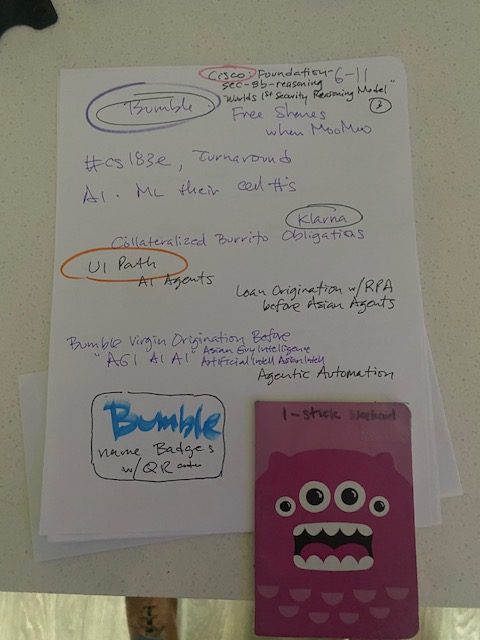 Cisco: Foundation-
6-11
sec-8b-reasoning
"Worlds 1st Security Reasoning Model"
Bumble
Free Shares
when MooMoo
#cs183e, Turnaround
AI. ML their cell #s
Klarna
Collateralized Burrito Obligations
UI Path
AI Agents
Loan Origination w/RPA
before Asian Agents
Bumble Virgin Origination Before
"AGI AI AI" Asian Guy Intelligence
Artificial Intell Asian Intell
Agentic Automation
Bumble
name Badges
w/QR codes
1-stick